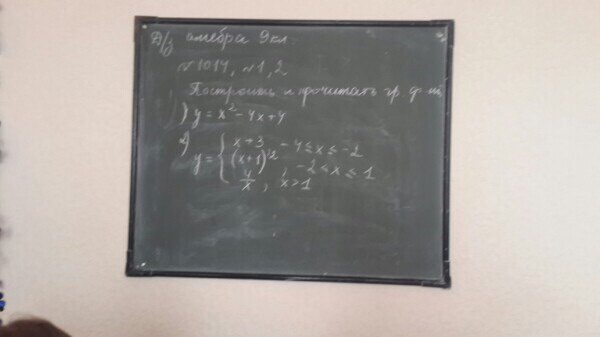 Д/з алгебра 9 кл
№1017, №1,2
Построить и прочитать гр. ф-ии
1) y = x² - 4x + 4
2) y = { x + 3, -4 ≤ x ≤ -2
(x + 1)², -2 < x ≤ 1
4/x, x > 1